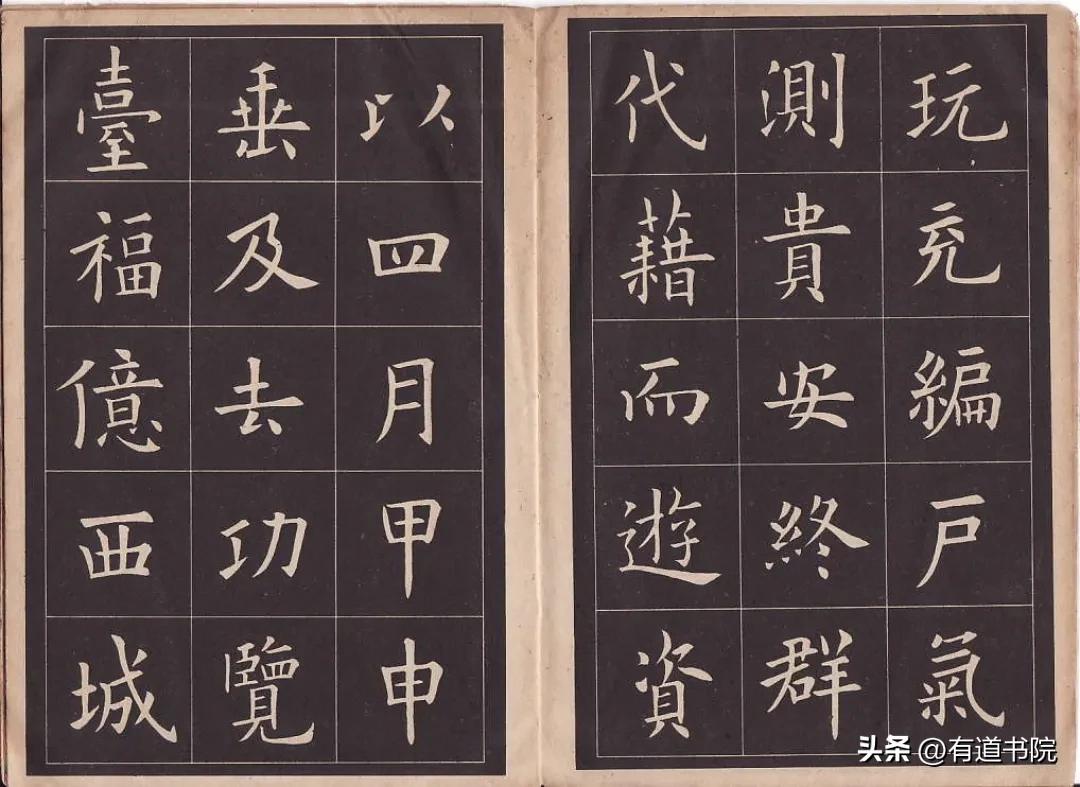 玩充編戸氣
測貴安終群
代藉而遊資
以四月甲申
垂及去功覽
臺福億西城
头条 @有道书院